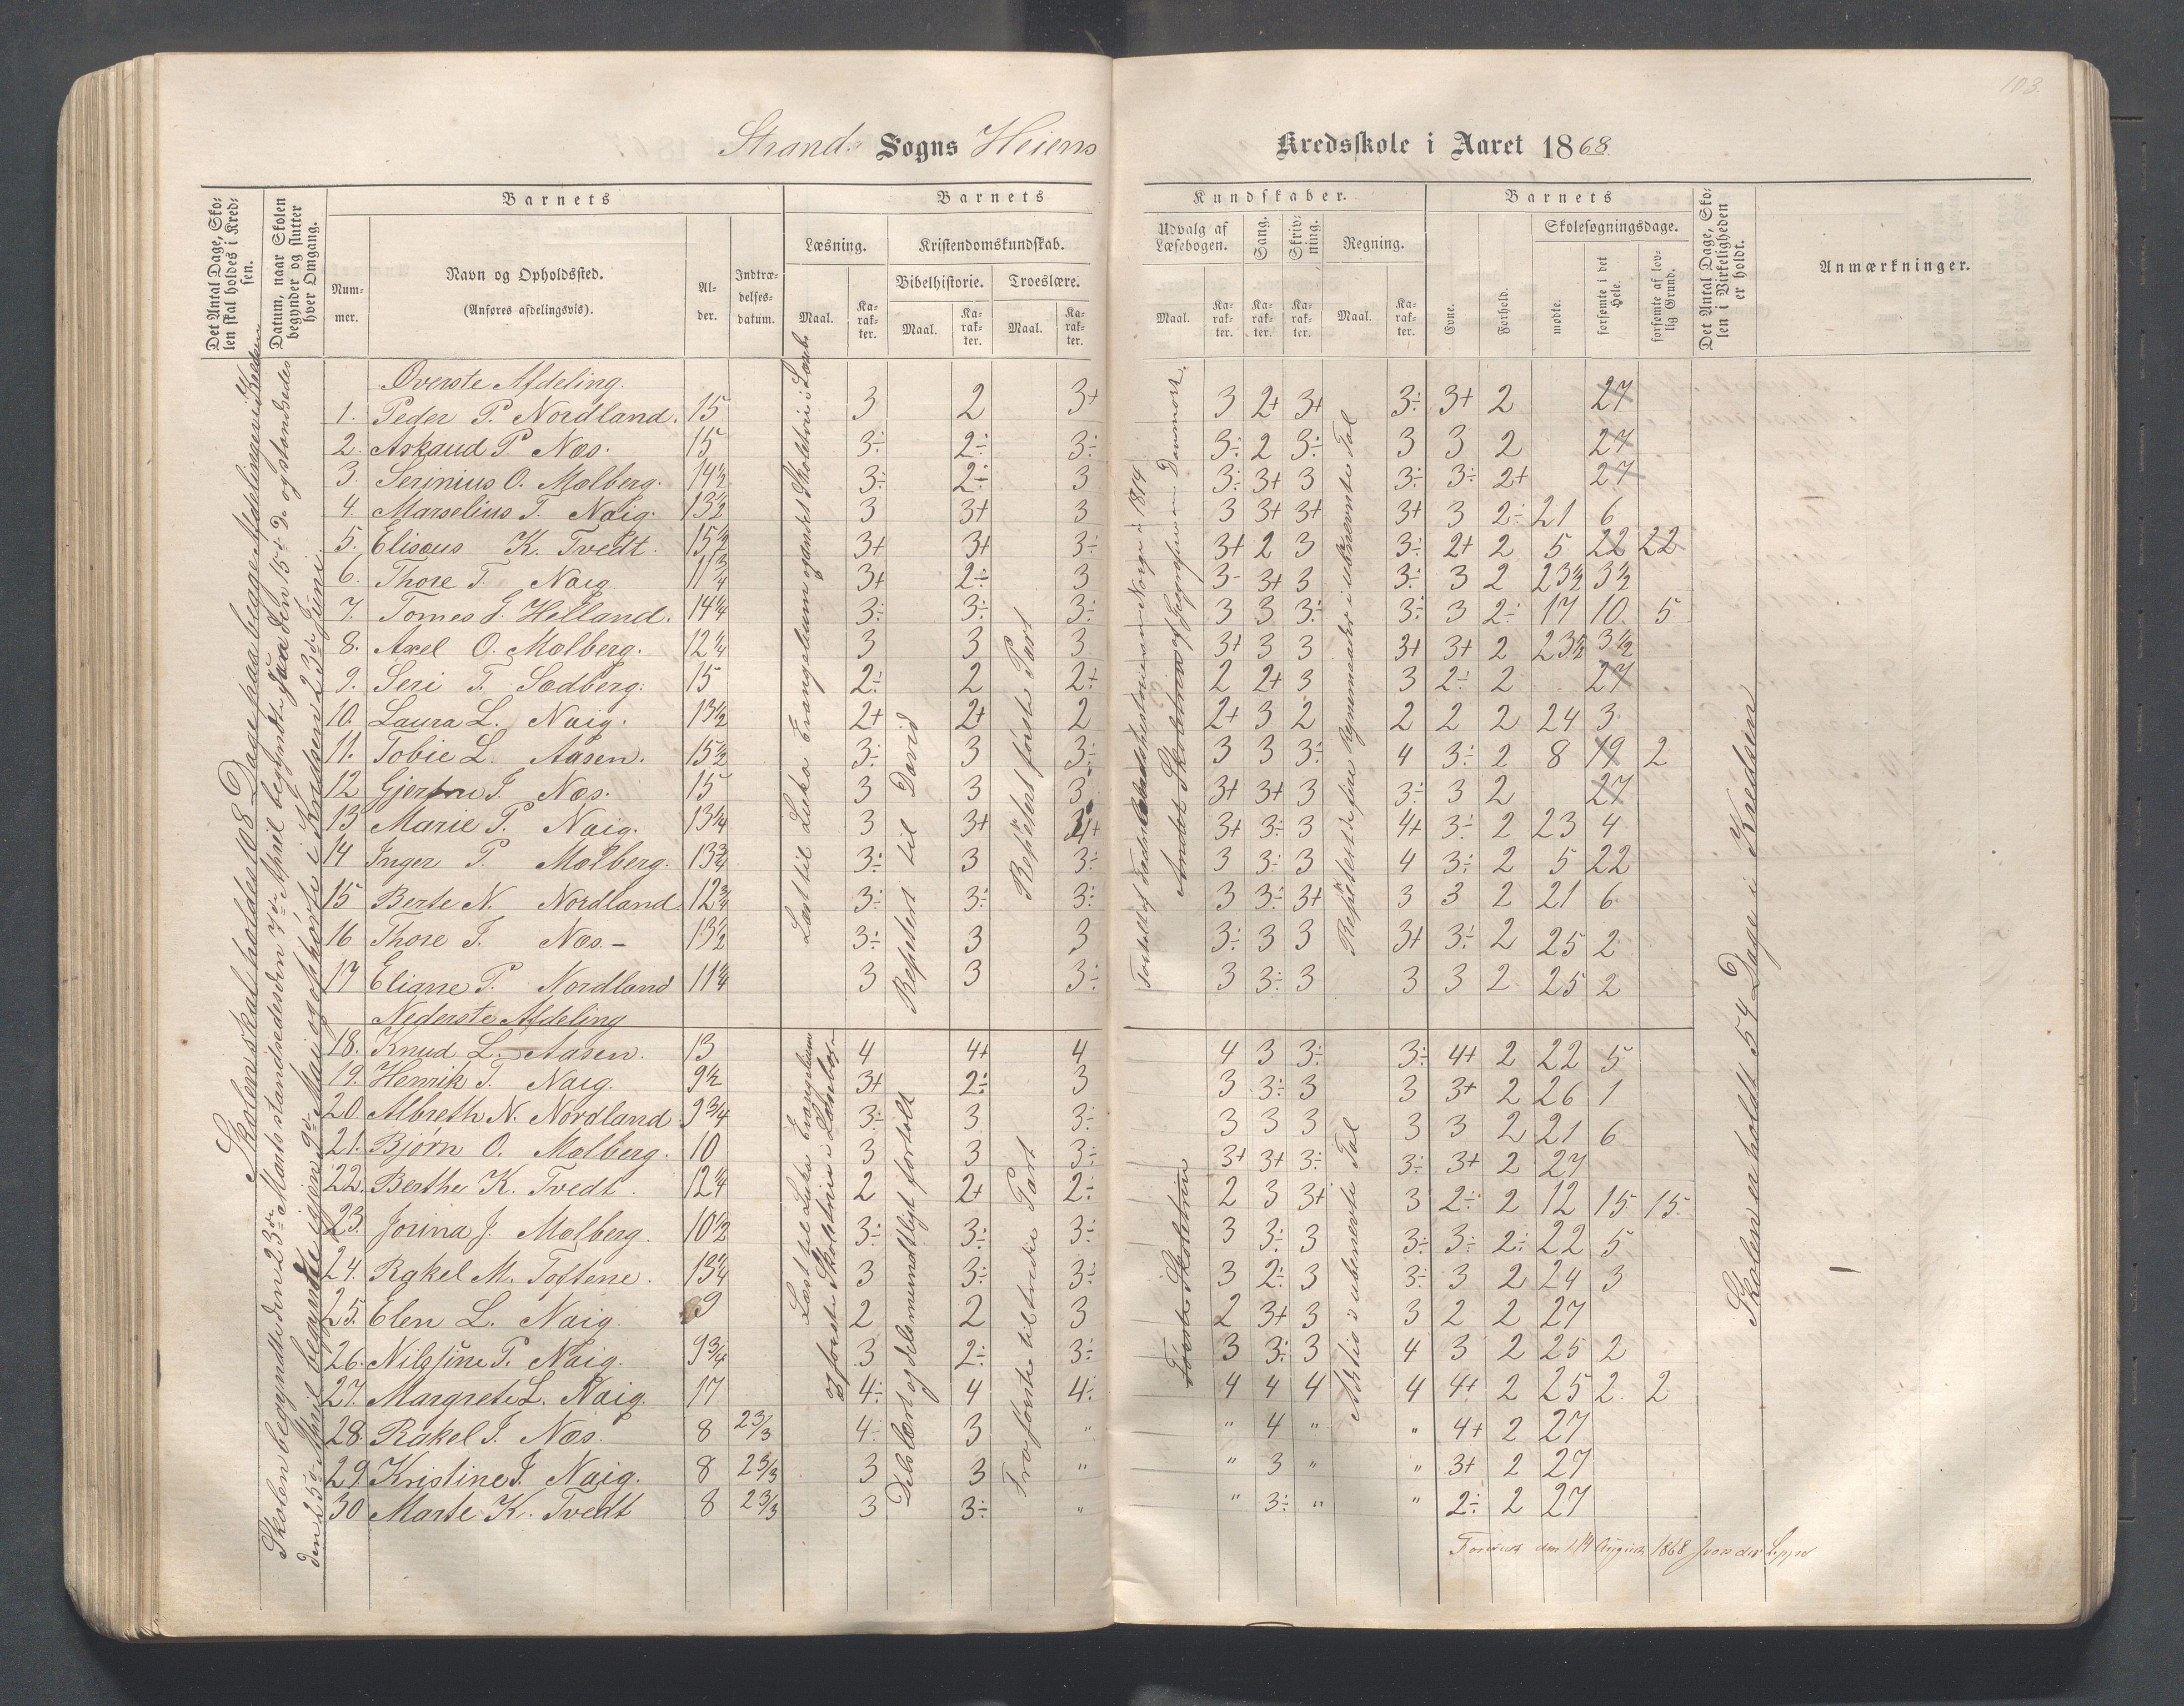 103.
Strand Sogns Heiens Kredsskole i Aaret 1868.
Det Antal Dage, Skolen skal holdes i Kredsen.
Datum, naar Skolen begynder og slutter hver Omgang.
Barnets
Nummer.
Navn og Opholdssted.
(Anføres afdelingsvis).
Alder.
Indtrædelsesdatum.
Barnets Kundskaber.
Læsning.
Kristendomskundskab.
Bibelhistorie. Troeslære.
Maal. Karakter. Maal. Karakter. Maal. Karakter.
Udvalg af Læsebogen. Sang. Skrivning. Regning.
Maal. Karakter. Karakter. Karakter. Maal. Karakter.
Barnets
Evne. Forhold. Skolesøgningsdage.
mødte. forsømte i det Hele. forsømte af lovlig Grund.
Det Antal Dage, Skolen i Virkeligheden er holdt.
Anmærkninger.
Skolen skal holdes 108 Dage paa begge Afdelinger i Kredsen
Skolen begyndte den 23de Marts standsedes den 7de April begyndte den 15de Do og standsedes
den 25de April begyndte igjen 9de Mai og ophørte i Kredsen 23de Juni.
Øverste Afdeling.
1. Peder P. Nordland. 15 3 2 3+ 3 2+ 3+ 3÷ 3+ 2 27
2. Askaud P. Næs. 15 3÷ 2÷ 3÷ 3÷ 2 3÷ 3 3 2 27
3. Serinius O. Molberg. 14½ 3÷ 2÷ 3 3÷ 3+ 3 3÷ 3÷ 2+ 27
4. Marselius T. Naig. 13½ 3 3+ 3 3 3+ 3+ 3+ 3 2÷ 21 6
5. Elisæus K. Tvedt. 15½ 3+ 3+ 3÷ 3+ 2 3 3÷ 2+ 2 5 22 22
6. Thore T. Naig 11¾ 3+ 2÷ 3 3- 3+ 3 3÷ 3 2 23½ 3½
7. Tomes G. Helland. 14¼ 3÷ 3÷ 3÷ 3 3 3÷ 3÷ 3 2÷ 17 10. 5
8. Axel O. Molberg. 12¼ 3 3 3 3+ 3 3 3+ 3+ 2 23½ 3½
9. Seri T. Sodberg. 15 2÷ 2 2+ 2 2+ 3 3 2÷ 2 27
10. Laura L. Naig. 13½ 2+ 2+ 2 2+ 3 2 2 2 2 24 3
11. Tobie L. Aasen. 15½ 3÷ 3 3÷ 3 3 3÷ 4 3÷ 2 8 19 2
12 Gjertru T. Næs. 15 3 3 3 3+ 3+ 3 3÷ 3 2 27
13 Marie P. Naig. 13¼ 3 3+ 4+ 3+ 3÷ 3 4+ 3÷ 2 23 4
14 Inger P. Molberg. 13¾ 3÷ 3 3÷ 3 3÷ 3 4 3÷ 2 5 22
15 Berte N. Nordland 12¾ 3÷ 3÷ 3÷ 3 3÷ 3+ 3 3 2 21 6
16 Thore T. Næs. 13½ 3÷ 3 3 3÷ 3 3 3+ 3÷ 2 25 2
17 Eliane P. Nordland 11¼ 3 3 3÷ 3 3÷ 3 3 3 2 25 2
Nederste Afdeling
18. Knud L. Aasen. 13 4 4+ 4 4 3 3÷ 3÷ 4+ 2 22 5
19. Henrik T. Naig. 9½ 3+ 2÷ 3 3 3÷ 3 3 3+ 2 26 1
20. Albreth N. Nordland 9¾ 3÷ 3 3÷ 3 3 3 3 3 2 21 6
21. Bjørn O. Molberg. 10 3 3 3÷ 3+ 3+ 3÷ 3÷ 3+ 2 27
22. Berthe K. Tvedt. 12¼ 2 2+ 2÷ 2 3 3+ 3 2÷ 2 12 15 15.
23. Jorina J. Molberg. 10½ 3÷ 3÷ 3÷ 3 3÷ 3 3÷ 3÷ 2÷ 22 5
24. Rakel M. Toftene. 13¼ 3 3÷ 3÷ 3 2÷ 3 3÷ 3 2 24 3
25. Elen L. Naig. 9 2 2 3 2 3+ 3 3 2 2 27
26. Nilssine P. Naig. 9¾ 3 2÷ 3÷ 3 3÷ 3 4 3 2 25 2
27. Margrete L. Naig. 17 4÷ 4 4÷ 4 4 4 4 4+ 2 25 2. 2
28. Rakel T. Næs. 8 23/3 4÷ 3 " " 4 " " 4+ 2 27
29. Kristine T. Naig. 8 23/3 3 3 " " 3 " " 3+ 2 27
30. Marte K. Tvedt 8 23/3 3 3÷ " " 3÷ " " 2÷ 2 27
Læst til Luka Evangelium og andet Skoletrin i Læseb.
Repetert til David
Repetert første Part
Andet Skoletrin af Geografien Danmark.
Repetert de fire Regnemaader i ubenævnte Tal
Læst til Luka Evangelium
og første Skoletrin i Læsebog
Dels lært og dels mundtligt fortalt
Fra første til tredie Part
Første Skoletrin
Addition i ubenævnte Tal
Skolen er holdt 54 Dage i Kredsen
Forevist den 14 August 1868 J von der Lippe